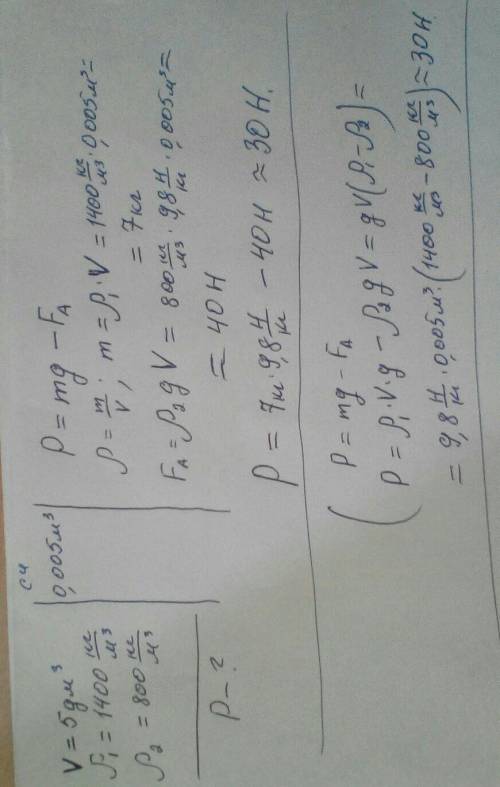 V = 5 дм³
ρ₁ = 1400 кг/м³
ρ₂ = 800 кг/м³
P - ?
СИ
0,005 м³
P = mg - F_A
ρ = m/V ; m = ρ₁ · V = 1400 кг/м³ · 0,005 м³ =
= 7 кг
F_A = ρ₂ g V = 800 кг/м³ · 9,8 Н/кг · 0,005 м³ =
≈ 40 Н
P = 7 кг · 9,8 Н/кг - 40 Н ≈ 30 Н.
( P = mg - F_A
P = ρ₁ · V · g - ρ₂ g V = g V (ρ₁ - ρ₂) =
= 9,8 Н/кг · 0,005 м³ · (1400 кг/м³ - 800 кг/м³) ≈ 30 Н.